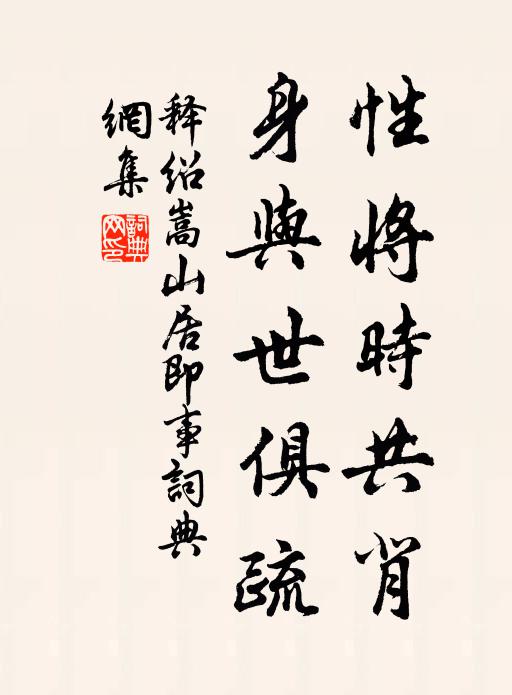 性將時共背
身與世俱疏
释绍嵩山居即事詞典
網集
詞典網印